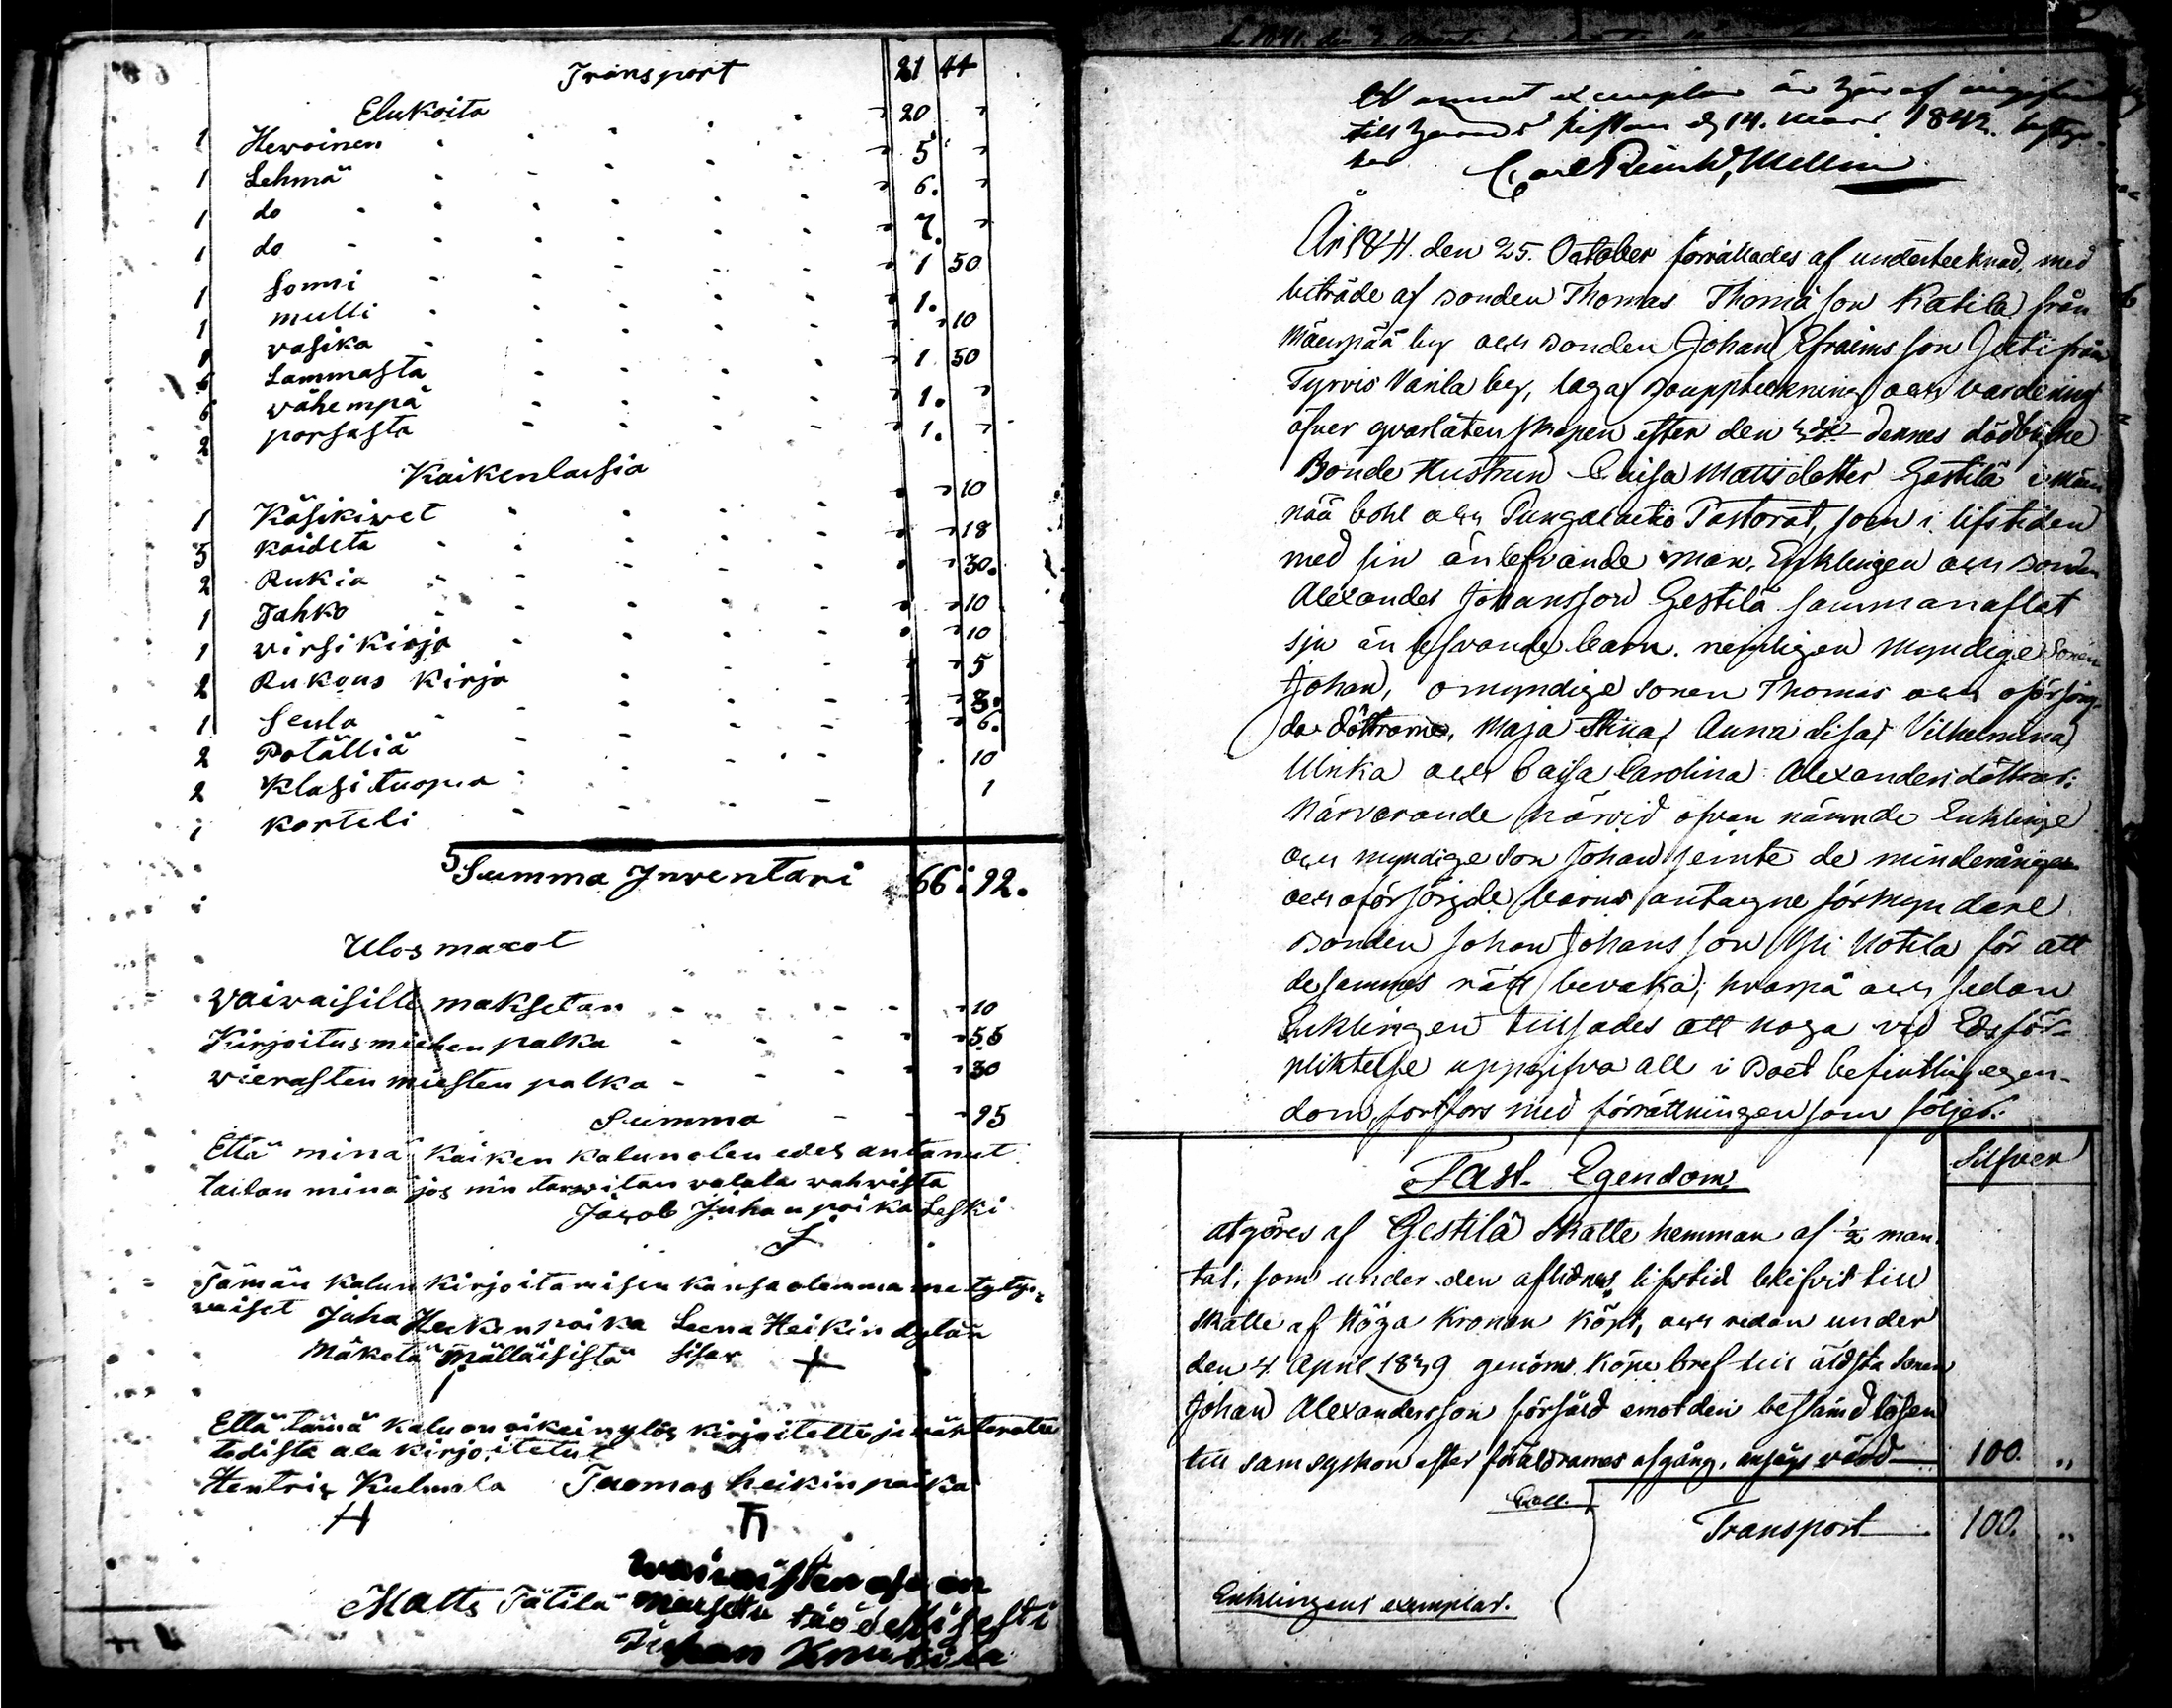 Transport 21 44
Elukoita
1 Hewoinen 20 "
1 Lehmä 5 "
1 do 6. "
1 do 7. "
1 Sonni 1 50
1 mulli 1.
1 vasika " 10
6 Lammasta 1 50
6 vähempä 1. "
2 porsasta 1. "
Kaikenlaisia
1 Käsikivet " 10
5 Kaideta " 18
2 Rukia " 30.
1 Tahko " 10
1 virsi Kirja " 10
2 Rukous Kirja " 5
1 Seula " 3.
2 Potällia " 6.
2 Klasi tuopia 10
1 Korteli 1
Summa Inventari 66: 92.
Ulos maxot
vaivaisille maksetan " 10
Kirjoitus miehen palka " 55
vierasten miesten palka " 30
Summa " 95
Että minä Kaiken Kalun olen edes antanut
taidan minä jos niin tarvitan valala vahvista
Jacob Juhan poika Leski
Tämän Kalun Kirjoitamisen Kansa olemma me tyty-
väiset Juha Heikin poika Leena Heikin dytär
Mäkelä Mälläisistä Sisar
Että tämä Kalu on oikein ylös kirjoitettu ja
todista ala kirjoitetut
Hentrix Kulmala Tuomas heikin poika
H Th
waivaisten osa on
Matts Tätilä Maxettu täödellisesti
Juhan Knuutila
Ett annat exemplar är här af
till 14. Mars 1842.
Carl Reinh. Mellin
År 1841. den 25. October förrättades af undertecknad, med
biträde af Bonden Thomas Thomasson Katila från
Mäenpää by och Bonden Johan Efraimsson Juti från
Tyrvis Vanla by, laga Bouppteckning och värdering
öfver qvarlåtenskapen efter den dennes dödblifne
Bonde Hustrun Caisa Mattsdotter Gestilä i
nää bohl och Pungalaitio Pastorat, som i lifstiden
med sin änlefvande man, Enklingen och Bonden
Alexander Johansson Gestilä sammanaflat
sju än lefvande barn. nemligen myndige Sonen
Johan, omyndige sonen Thomas och oförsörj-
da döttrarne, Maja Stina, Anna Lisa, Vilhelmina
Ulrika och Caisa Carolina Alexandersdöttrar:
Närvarande härvid ofvan nämnde Enklinge
och myndige Son Johan jemte de minderåriga
och oförsörjde barns antagne förmyndare
Bonden Johan Johansson Yli Uotila för att
desammes rätt bevaka; hvarpå och sedan
Enklingen tillsades att noga vid Edsför-
pliktelse uppgifva all i Boet befintlig egen-
dom, fortfors med förrättningen som följer:
Fast Egendom. Silfver
utgöres af Gestilä Skatte hemman af ½ man-
tal, som under den aflidnes lifstid blifvit till
Skatte af Höga Kronan Köpt, och redan under
den 4. April 1839 genom Köpe bref till äldsta Sonen
Johan Alexandersson försåld emot den bestämd lösen
till samsyskon efter föräldrarnes afgång, ansågs värd 100. "
Transport 100. "
Enklingens exemplar.